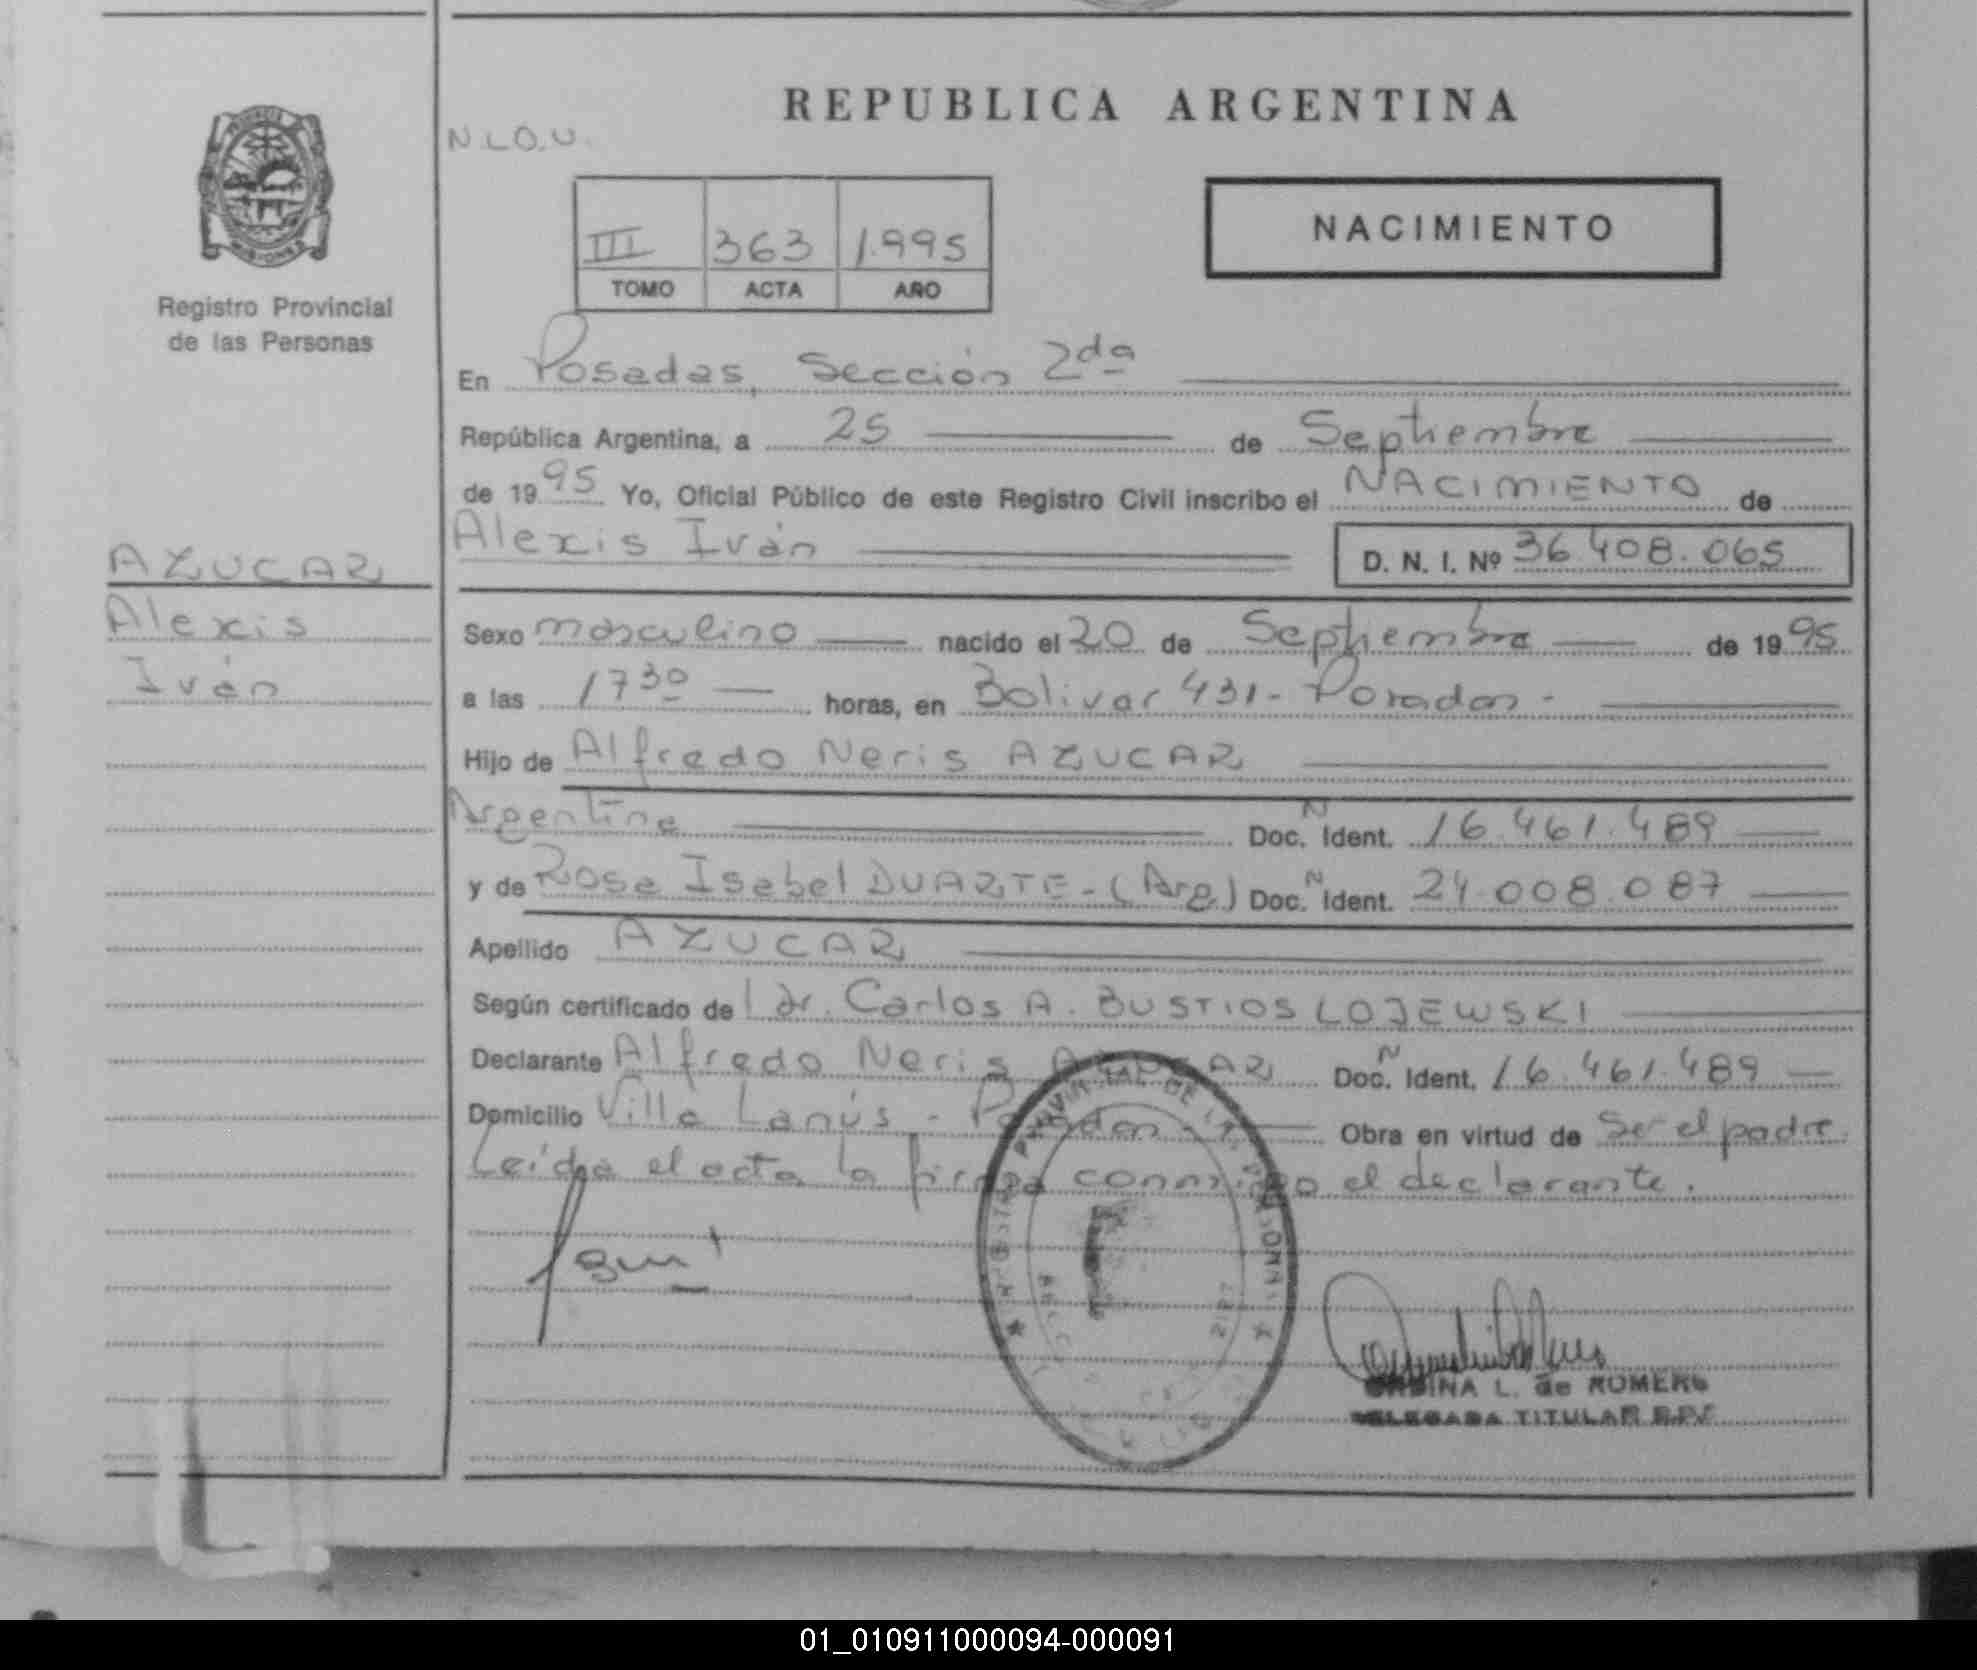 REPUBLICA ARGENTINA
N.L.O.U.
PROVINCIA
MISIONES
Registro Provincial
de las Personas
III 363 1.995
TOMO ACTA AÑO
NACIMIENTO
En Posadas, Sección 2da
República Argentina, a 25 de Septiembre
de 1995 Yo, Oficial Público de este Registro Civil inscribo el NACIMIENTO de
Alexis Iván D. N. I. Nº 36.408.065
AZUCAR
Alexis
Iván
Sexo masculino nacido el 20 de Septiembre de 1995
a las 1730 horas, en Bolivar 431 - Posadas -
Hijo de Alfredo Neris AZUCAR
Argentina Doc. N Ident. 16.461.489
y de Rosa Isabel DUARTE - (Arg) Doc. N Ident. 24.008.087
Apellido AZUCAR
Según certificado del dr. Carlos A. BUSTIOS LOJEWSKI
Declarante Alfredo Neris AZUCAR Doc. N Ident. 16.461.489
Domicilio Villa Lanús - Posadas - Obra en virtud de Ser el padre.
Leída el acta la firma conmigo el declarante.
L. de ROMERO
DELEGADA TITULAR R.P.P.
01_010911000094-000091